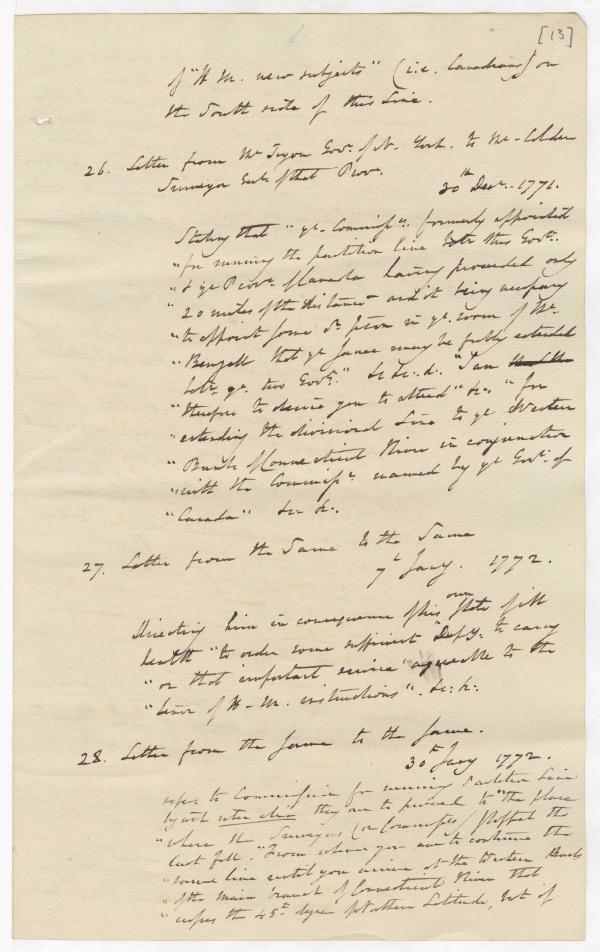 [13]
of "H. M. new subjects" (i.e. Canadians) on
the South side of this Line.
26. Letter from Mr Tryon Govr. of N. York. to Mr. Colden
Surveyor Genl. of that Provce.
30th Decr. 1771.
Stating that "ye. Commissrs. formerly appointed
"for running the partition line betn this Govt.
"& ye Provce. of Canada having proceeded only
"20 miles of the distance and it being necessary
"to appoint some Pr. person in ye. room of Mr.
" that ye same may be fully extended
betn. ye. two Govts." &c &c. &. "I am
"therefore to desire you to attend" &c. "for
"extending the divisional Line to ye Western
"Bank of Connecticut River in conjunction
"with the Commissrs. named by ye Govr. of
"Canada" &c &c.
27. Letter from the Same to the Same
7th Jany. 1772.
Directing him in consequence of his own state of ill
health "to order some sufficient Depy. to carry
"on that important service" agreeable to the
"tenor of H. M. instructions". &c. &c.
28. Letter from the Same to the Same.
30th Jany 1772.
refers to Commission for running Partition Line
by wch inter alia they are to proceed to "the place
"where the Surveyors (or Commissrs) stopped the
last fall. "From whence you are to continue the
"same line until you arrive at the Western Bank
"of the main branch of Connecticut River that
"crosses the 45th degree Northern Latitude, but if